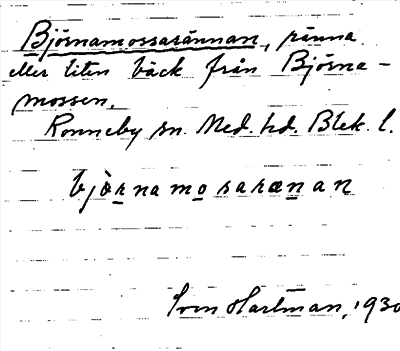 Björnamossarännan, ränna
eller liten bäck från Björna-
mossen.
Ronneby sn. Med. hd. Blek. l.
bjönamosarænan
Sven Hartman, 1930